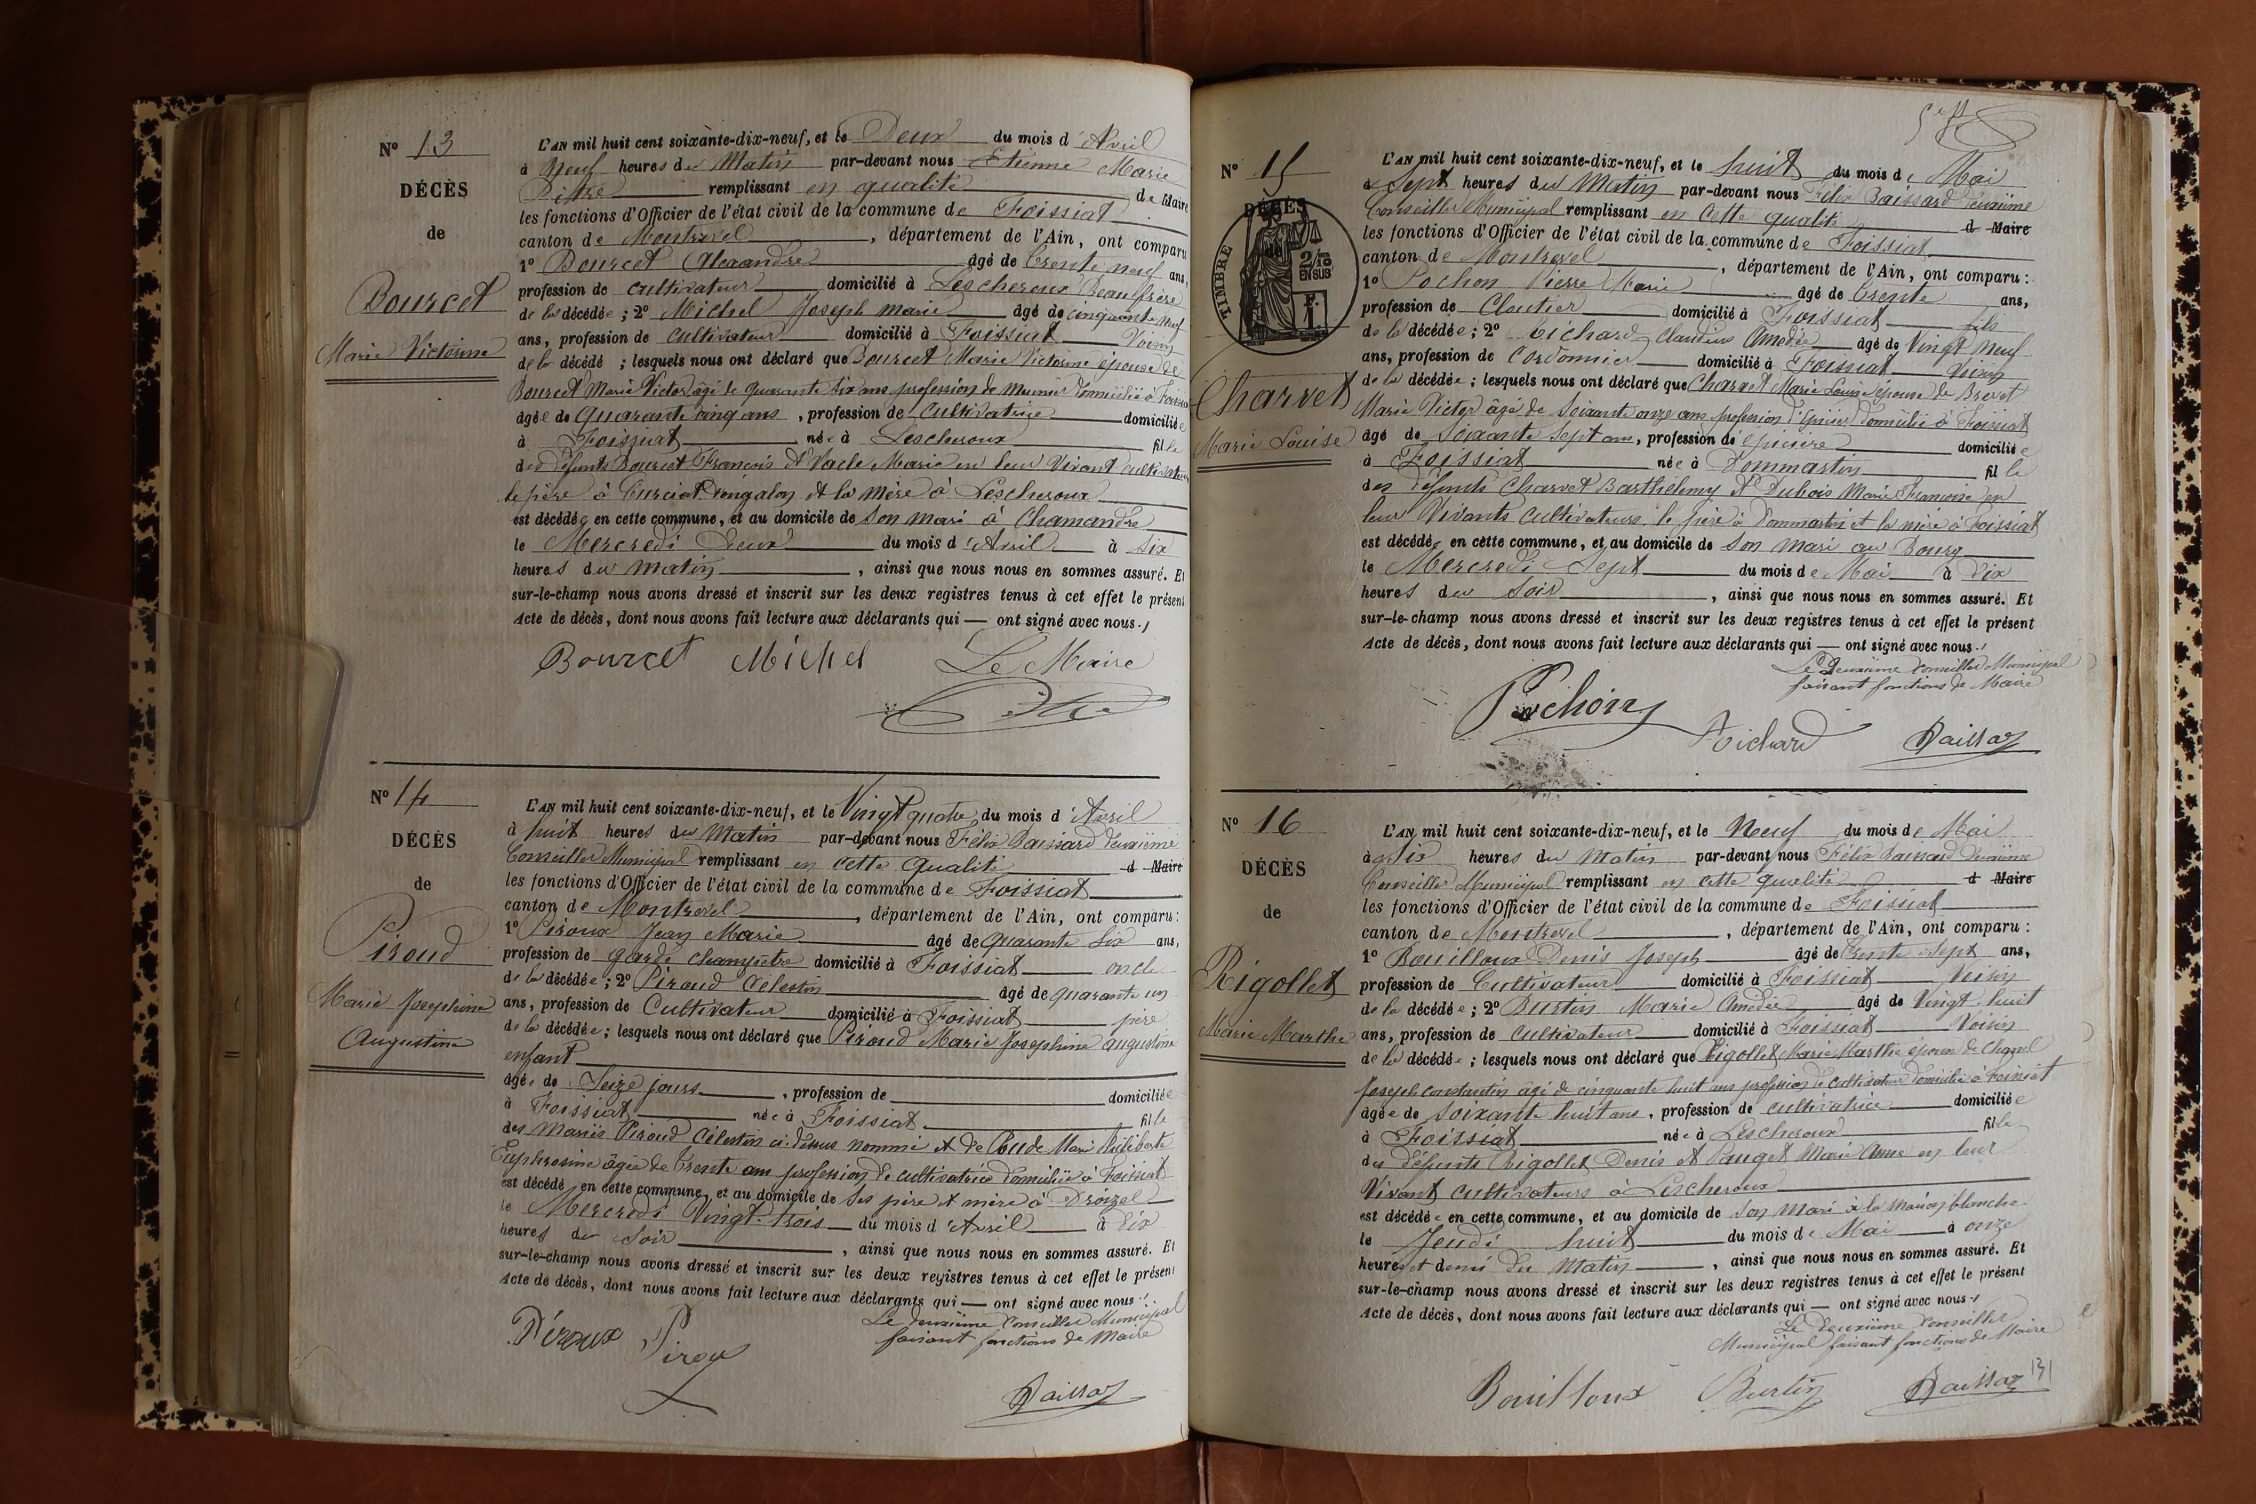 N° 13
DÉCÈS
de
Bourcet
Marie Victorine
L'AN mil huit cent soixante-dix-neuf, et le Deux du mois d'Avril
à Neuf heures du Matin par-devant nous Etienne Marie
Pitre remplissant en qualité de Maire
les fonctions d'Officier de l'état civil de la commune de Foissiat
canton de Montrevel, département de l'Ain, ont comparu
1° Bourcet Alexandre âgé de trente neuf ans,
profession de cultivateur domicilié à Lescheroux Beau frère
de la décédée ; 2° Michel Joseph marie âgé de cinquante neuf
ans, profession de cultivateur domicilié à Foissiat Voisin
de la décédé ; lesquels nous ont déclaré que Bourcet Marie Victorine épouse de
Bourcet Marie Victor âgé de quarante six ans profession de Meunier domicilié à Foissiat
âgée de quarante cinq ans, profession de cultivatrice domiciliée
à Foissiat née à Lescheroux fille
des défunts Bourcet François et Vacle Marie en leur Vivant cultivateurs
le père à Curciat Dongalon et la mère à Lescheroux
est décédée en cette commune, et au domicile de son mari à Chamandre
le Mercredi Deux du mois d'Avril à six
heures du matin, ainsi que nous nous en sommes assuré. Et
sur-le-champ nous avons dressé et inscrit sur les deux registres tenus à cet effet le présent
Acte de décès, dont nous avons fait lecture aux déclarants qui — ont signé avec nous.
Bourcet Michel Le Maire
Pitre
N° 14
DÉCÈS
de
Piroud
Marie Josephine
Augustine
L'AN mil huit cent soixante-dix-neuf, et le Vingt quatre du mois d'Avril
à huit heures du Matin par-devant nous Félix Baissard deuxième
Conseiller Municipal remplissant en cette qualité d Maire
les fonctions d'Officier de l'état civil de la commune de Foissiat
canton de Montrevel, département de l'Ain, ont comparu :
1° Piroux Jean Marie âgé de quarante six ans,
profession de garde champêtre domicilié à Foissiat oncle
de la décédée ; 2° Piroud Célestin âgé de quarante un
ans, profession de Cultivateur domicilié à Foissiat père
de la décédée ; lesquels nous ont déclaré que Piroud Marie Josephine augustine
enfant
âgée de Seize jours, profession de domiciliée
à Foissiat née à Foissiat fille
des mariés Piroud Célestin ci-dessus nommé et de Marie Philiberte
Euphrosine âgée de trente ans profession de cultivatrice domiciliée à Foissiat
est décédé en cette commune, et au domicile de ses père et mère à
le Mercredi Vingt-trois du mois d'Avril à Dix
heures du Soir, ainsi que nous nous en sommes assuré. Et
sur-le-champ nous avons dressé et inscrit sur les deux registres tenus à cet effet le présent
Acte de décès, dont nous avons fait lecture aux déclarants qui — ont signé avec nous.
Le deuxième Conseiller Municipal
faisant fonctions de Maire
Péroux Pirou
Baissard
N° 15
DÉCÈS
de
TIMBRE
2/10
EN SUS
Charvet
Marie Louise
L'AN mil huit cent soixante-dix-neuf, et le huit du mois de Mai
à Sept heures du Matin par-devant nous Félix Baissard deuxième
Conseiller Municipal remplissant en cette qualité d Maire
les fonctions d'Officier de l'état civil de la commune de Foissiat
canton de Montrevel, département de l'Ain, ont comparu :
1° Pochon Pierre Marie âgé de trente ans,
profession de Cloutier domicilié à Foissiat fils
de la décédée ; 2° Claudius Amédée âgé de Vingt neuf
ans, profession de Cordonnier domicilié à Foissiat Voisin
de la décédée ; lesquels nous ont déclaré que Charvet Marie Louise épouse de
Marie Victor âgé de soixante onze ans profession d'épicier domicilié à Foissiat
âgé de Soixante Sept ans, profession de épicière domiciliée
à Foissiat née à Dommartin fille
des défunts Charvet Barthélemy et Dubois Marie Françoise en
leur Vivants cultivateurs le père à Dommartin et la mère à Foissiat
est décédée en cette commune, et au domicile de son mari au Bourg
le Mercredi Sept du mois de Mai à Dix
heures du Soir, ainsi que nous nous en sommes assuré. Et
sur-le-champ nous avons dressé et inscrit sur les deux registres tenus à cet effet le présent
Acte de décès, dont nous avons fait lecture aux déclarants qui — ont signé avec nous.
Le Deuxième Conseiller Municipal
faisant fonctions de Maire
Pochon
Baissard
N° 16
DÉCÈS
de
Rigollet
Marie Marthe
L'AN mil huit cent soixante-dix-neuf, et le Neuf du mois de Mai
à Six heures du Matin par-devant nous Félix Baissard Deuxième
Conseiller Municipal remplissant en cette qualité d Maire
les fonctions d'Officier de l'état civil de la commune de Foissiat
canton de Montrevel, département de l'Ain, ont comparu :
1° Bouilloux Denis Joseph âgé de trente sept ans,
profession de Cultivateur domicilié à Foissiat Voisin
de la décédée ; 2° Burtin Marie Amédée âgé de Vingt-huit
ans, profession de Cultivateur domicilié à Foissiat Voisin
de la décédée ; lesquels nous ont déclaré que Rigollet Marie Marthe épouse de Chanel
Joseph Constantin âgé de cinquante huit ans profession de cultivateur domicilié à Foissiat
âgée de soixante huit ans, profession de cultivatrice domiciliée
à Foissiat née à Lescheroux fille
des défunts Rigollet Denis et Pauget Marie Anne en leur
Vivant cultivateurs à Lescheroux
est décédée en cette commune, et au domicile de son Mari à la maison blanche
le Jeudi huit du mois de Mai à onze
heures et demi du Matin, ainsi que nous nous en sommes assuré. Et
sur-le-champ nous avons dressé et inscrit sur les deux registres tenus à cet effet le présent
Acte de décès, dont nous avons fait lecture aux déclarants qui — ont signé avec nous.
Le Deuxième Conseiller
Municipal faisant fonctions de Maire
Bouilloux Burtin Baissard
131